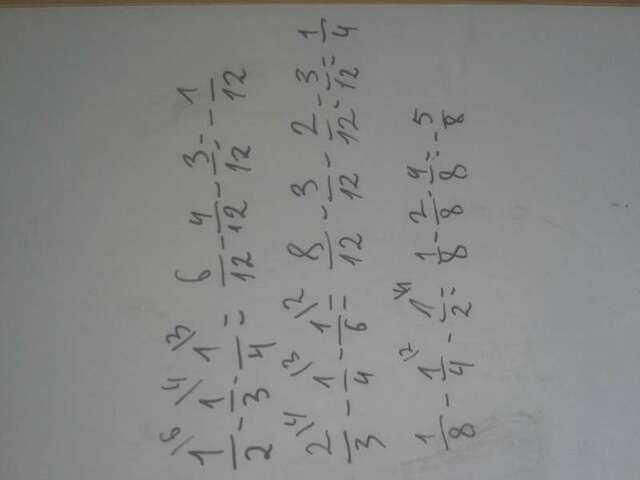 1/2\6 - 1/3\4 - 1/4\3 = 6/12 - 4/12 - 3/12 = - 1/12
2/3\4 - 1/4\3 - 1/6\2 = 8/12 - 3/12 - 2/12 = 3/12 = 1/4
1/8 - 1/4\2 - 1/2\4 = 1/8 - 2/8 - 4/8 = - 5/8